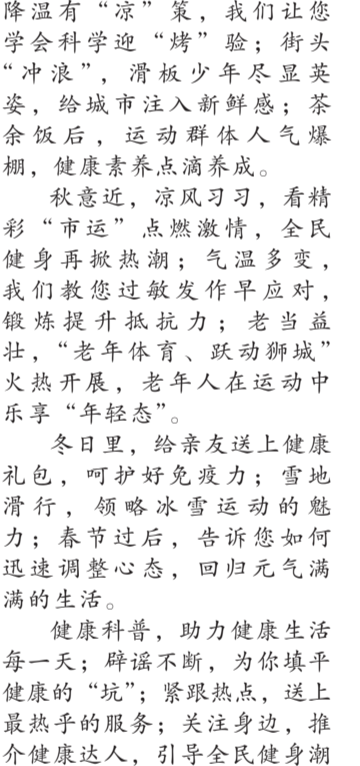 降温有“凉”策，我们让您
学会科学迎“烤”验；街头
“冲浪”，滑板少年尽显英
姿，给城市注入新鲜感；茶
余饭后，运动群体人气爆
棚，健康素养点滴养成。
秋意近，凉风习习，看精
彩“市运”点燃激情，全民
健身再掀热潮；气温多变，
我们教您过敏发作早应对，
锻炼提升抵抗力；老当益
壮，“老年体育、跃动狮城”
火热开展，老年人在运动中
乐享“年轻态”。
冬日里，给亲友送上健康
礼包，呵护好免疫力；雪地
滑行，领略冰雪运动的魅
力；春节过后，告诉您如何
迅速调整心态，回归元气满
满的生活。
健康科普，助力健康生活
每一天；辟谣不断，为你填平
健康的“坑”；紧跟热点，送上
最热乎的服务；关注身边，推
介健康达人，引导全民健身潮